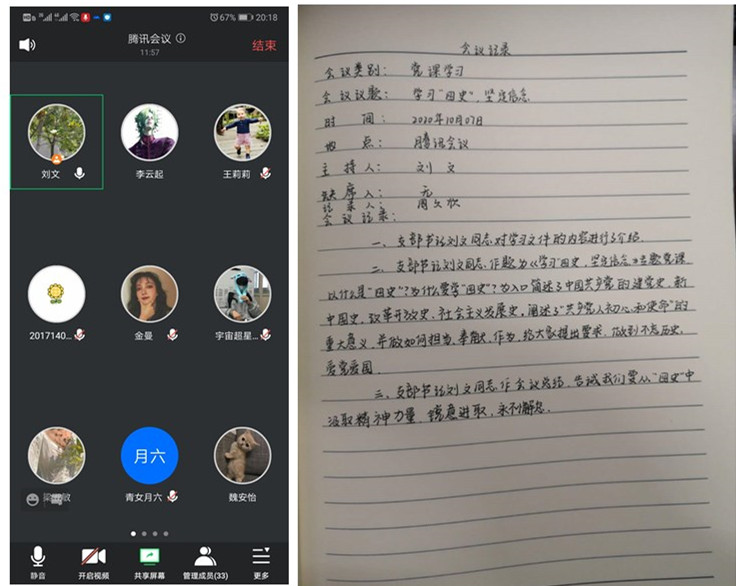 67% 20:18
腾讯会议
11:57
结束
刘文
李云起
王莉莉
2017140...
金曼
宇宙超星...
月六
青女月六
魏安怡
静音
开启视频
共享屏幕
管理成员(33)
更多
会议记录
会议类别: 党课学习
会议议题: 学习"四史",坚定信念
时 间: 2020年10月07日
地 点: 腾讯会议
主 持 人: 刘文
缺 席 人: 无
记 录 人: 周文欣
会议记录:
一、支部书记刘文同志对学习文件的内容进行了介绍.
二、支部书记刘文同志作题为《学习"四史",坚定信念》主题党课
以什么是"四史"?为什么要学"四史"?为入口简述了中国共产党的建党史,新
中国史,改革开放史,社会主义发展史,阐述了"共产党人初心和使命"的
重大意义,并做如何担当,奉献,作为,给大家提出要求,做到不忘历史,
爱党爱国.
三、支部书记刘文同志作会议总结,告诫我们要从"四史"中
汲取精神力量,锐意进取,永不懈怠.